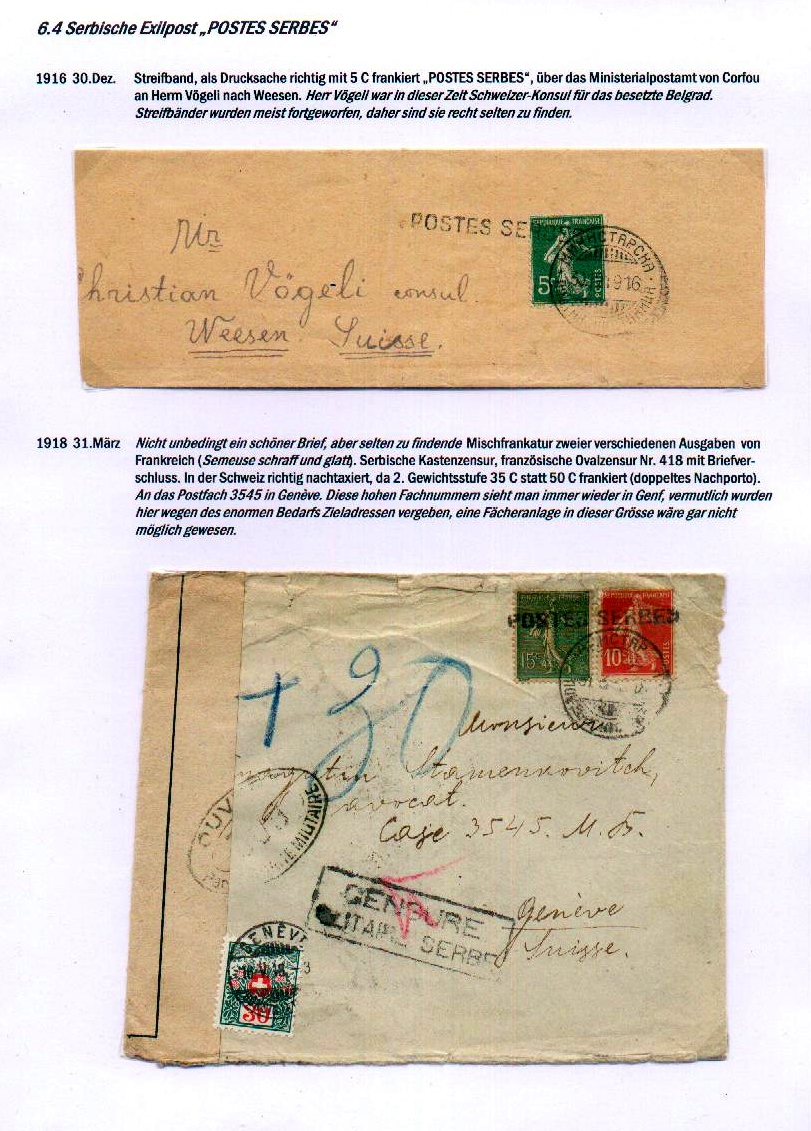 6.4 Serbische Exilpost „POSTES SERBES“
1916 30.Dez. Streifband, als Drucksache richtig mit 5 C frankiert „POSTES SERBES“, über das Ministerialpostamt von Corfou
an Herrn Vögeli nach Weesen. Herr Vögeli war in dieser Zeit Schweizer-Konsul für das besetzte Belgrad.
Streifbänder wurden meist fortgeworfen, daher sind sie recht selten zu finden.
POSTES SE
REPUBLIQUE FRANÇAISE
5
POSTES
1916
Mr
Christian Vögeli consul.
Weesen. Suisse.
1918 31.März Nicht unbedingt ein schöner Brief, aber selten zu findende Mischfrankatur zweier verschiedenen Ausgaben von
Frankreich (Semeuse schraff und glatt). Serbische Kastenzensur, französische Ovalzensur Nr. 418 mit Briefver-
schluss. In der Schweiz richtig nachtaxiert, da 2. Gewichtsstufe 35 C statt 50 C frankiert (doppeltes Nachporto).
An das Postfach 3545 in Genève. Diese hohen Fachnummern sieht man immer wieder in Genf, vermutlich wurden
hier wegen des enormen Bedarfs Zieladressen vergeben, eine Fächeranlage in dieser Grösse wäre gar nicht
möglich gewesen.
POSTES SERBES
15
10
POSTES
Monsieur
Stamenkovitch,
avocat.
Case 3545. M. B.
Genève
Suisse.
OUV
MILITAIRE
CENSURE
LITAIRE SERBE
GENÈVE
30